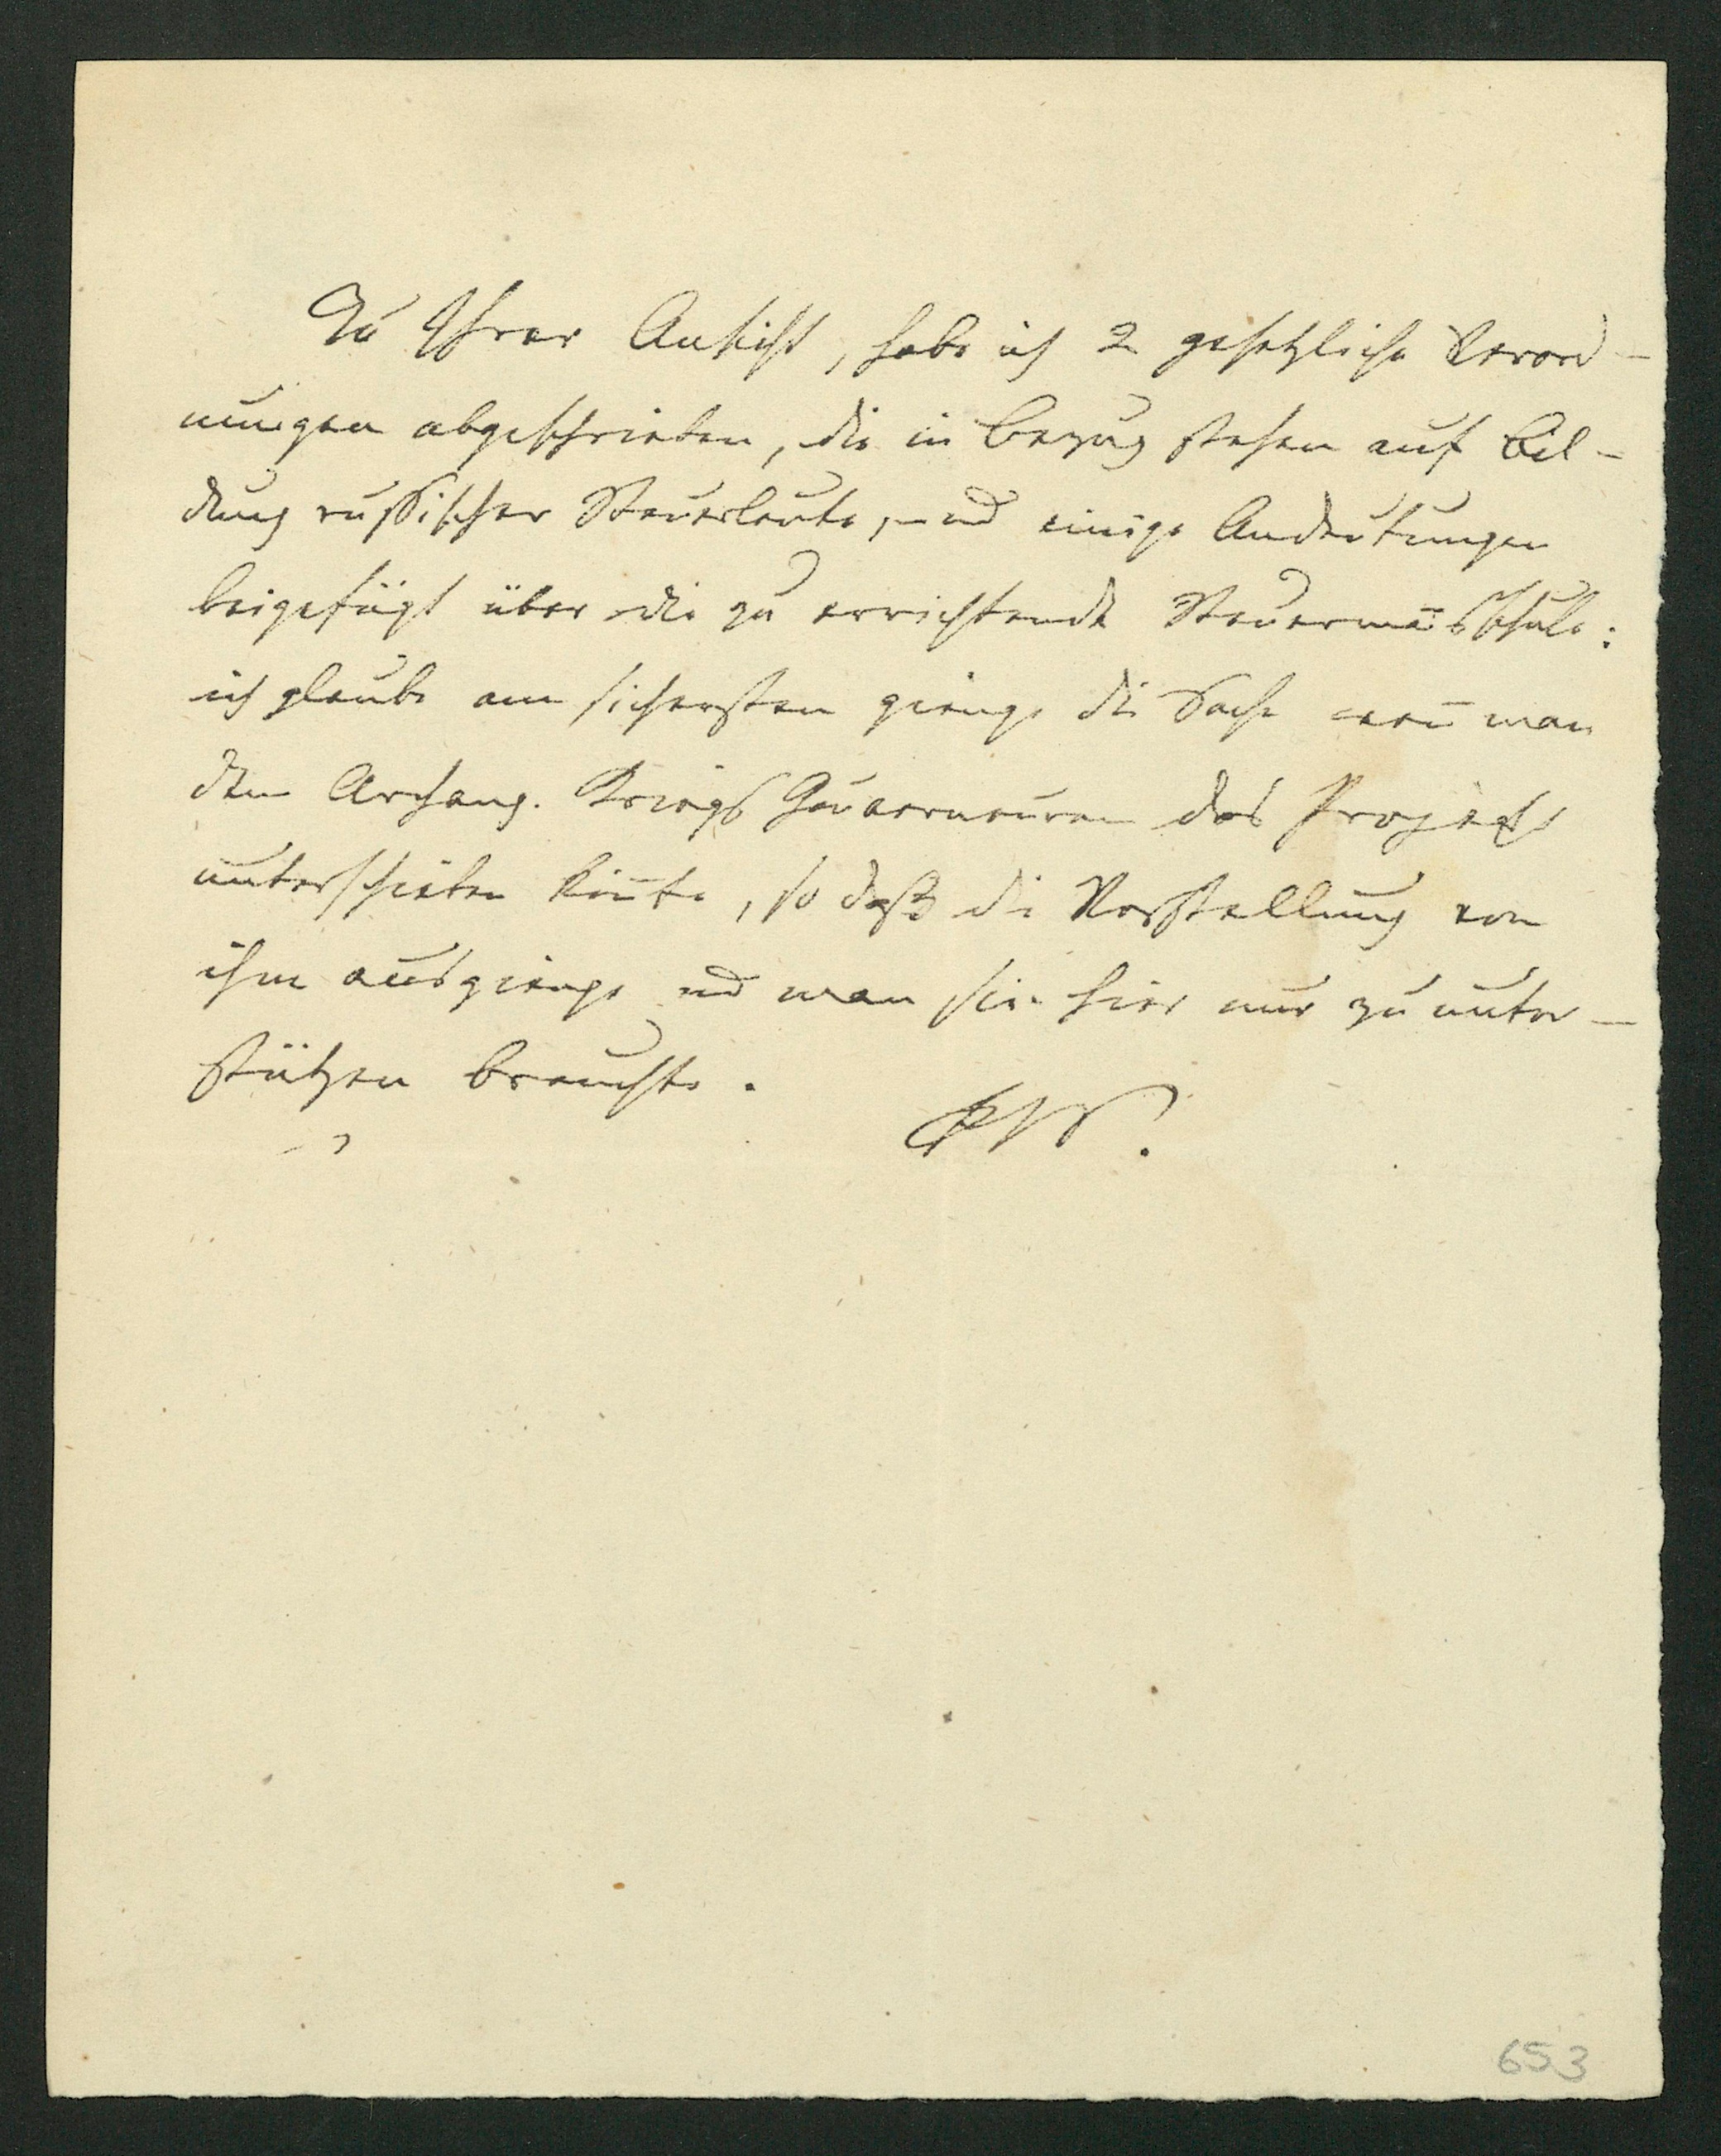 Zu Ihrer Ansicht, habe ich 2 gesetzliche Verord-
nungen abgeschrieben, die in Bezug stehen auf Bil-
dung russischer Steuerleute, und einige Andeutungen
beigefügt über die zu errichtende Steuermān̄sschule:
ich glaube am sichersten gienge die Sache wen̄ man
dem Archang. Kriegs Gouverneuren das Project
unterschieben kön̄te, so daß die Vorstellung von
ihm ausgienge und man sie hier nur zu unter-
stützen brauchte.
FW.
653